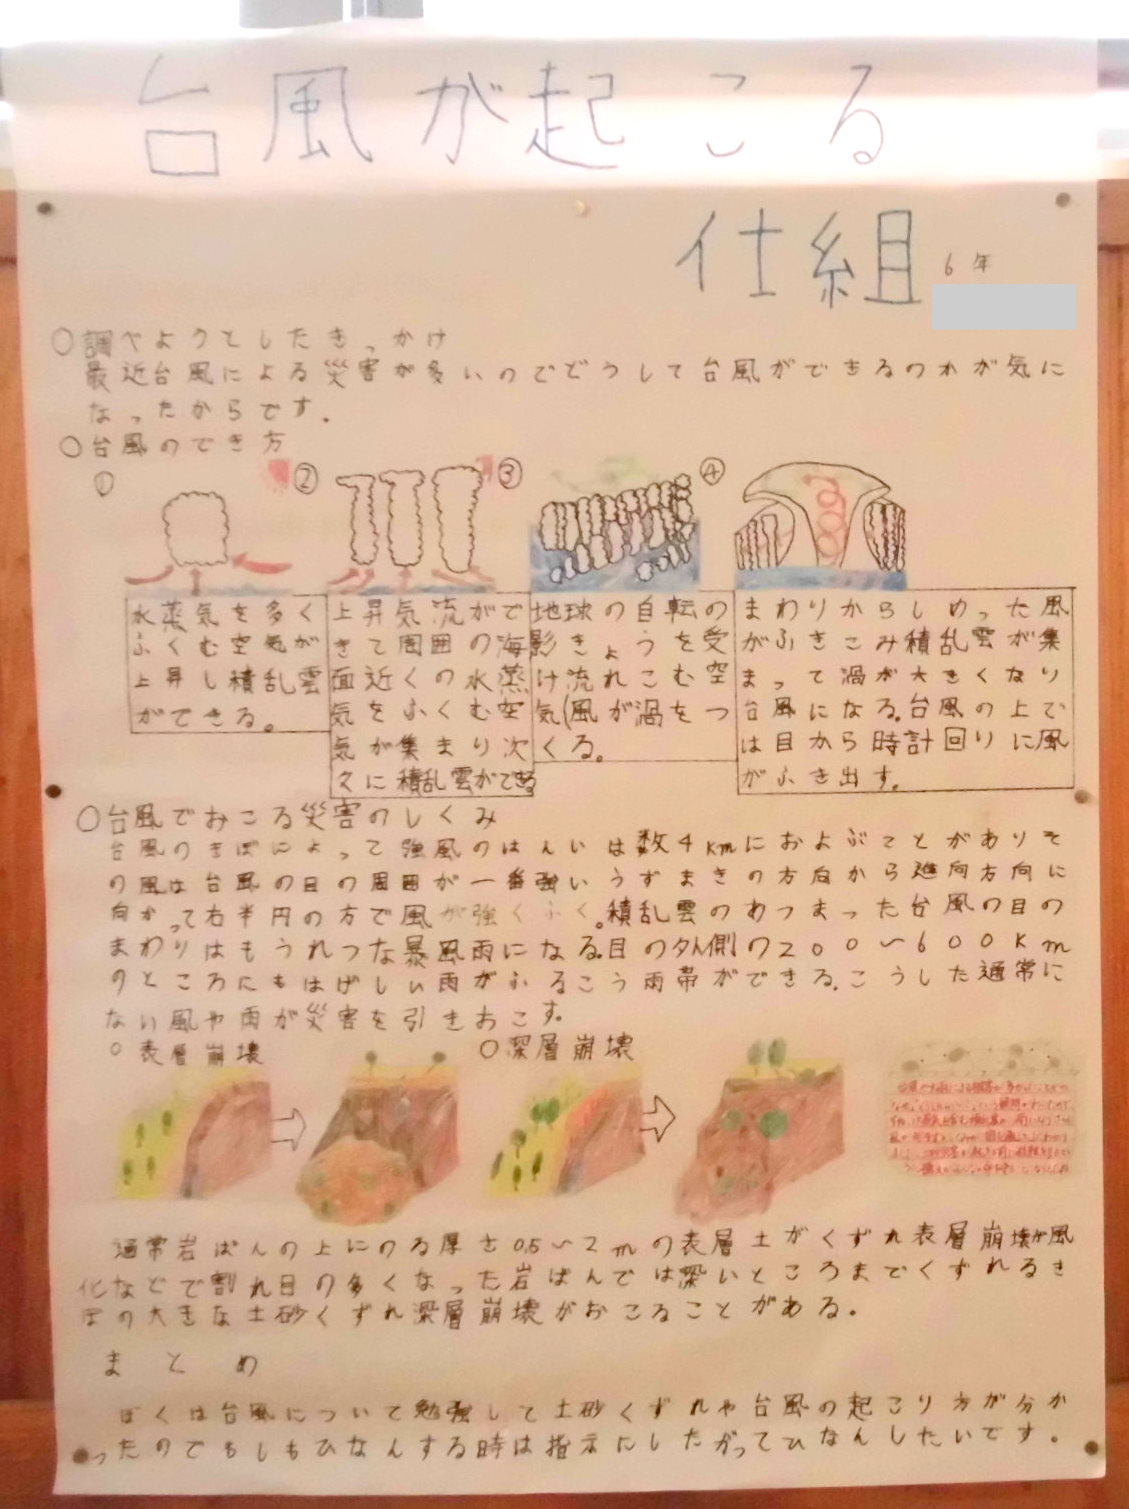 台風が起こる
仕組
6年
○調べようとしたきっかけ
最近台風による災害が多いのでどうして台風ができるのかが気に
なったからです.
○台風のでき方
①
②
③
④
水蒸気を多く
ふくむ空気が
上昇し積乱雲
ができる。
上昇気流がで
きて周囲の海
面近くの水蒸
気をふくむ空
気が集まり次
々に積乱雲ができる
地球の自転の
影きょうを受
け流れこむ空
気(風が渦をつ
くる。
まわりからしめった風
がふきこみ積乱雲が集
まって渦が大きくなり
台風になる。台風の上で
は目から時計回りに風
がふき出す。
○台風でおこる災害のしくみ
台風のきぼによって強風のはんいは数千kmにおよぶことがありそ
の風は台風の目の周囲が一番強いうずまきの方向から進向方向に
向かって右半円の方で風が強くふく。積乱雲のあつまった台風の目の
まわりはもうれつな暴風雨になる。目の外側の200~600km
のところにもはげしい雨がふるこう雨帯ができる。こうした通常に
ない風や雨が災害を引きおこす。
○表層崩壊
○深層崩壊
通常岩ばんの上にのる厚さ0.5~2mの表層土がくずれ表層崩壊が風
化などで割れ目の多くなった岩ばんでは深いところまでくずれるき
ぼの大きな土砂くずれ深層崩壊がおこることがある。
まとめ
ぼくは台風について勉強して土砂くずれや台風の起こり方が分か
ったのでもしもひなんする時は指示にしたがってひなんしたいです。